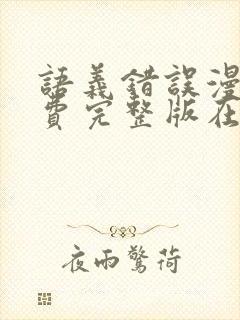 語義錯誤漫
費完整版在
夜雨驚荷